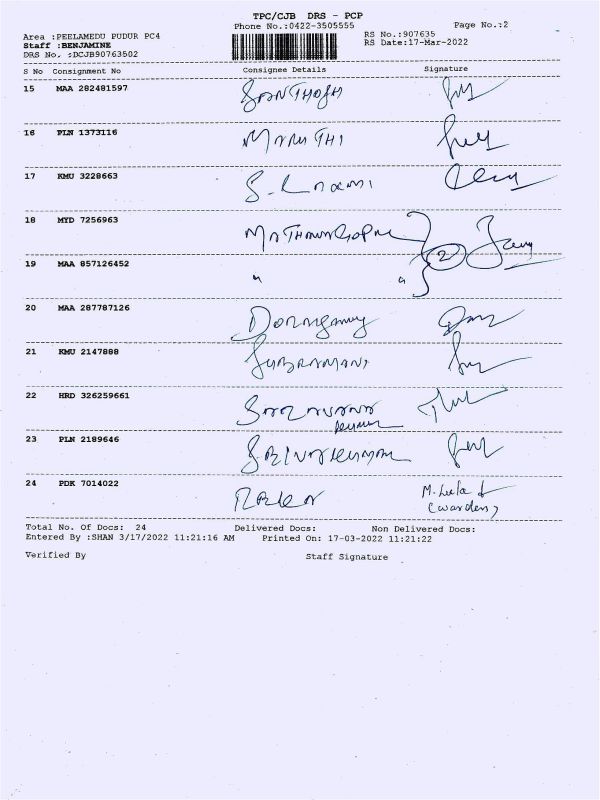 TPC/CJB DRS - PCP
Phone No.:0422-3505555 Page No.:2
Area :PEELAMEDU PUDUR PC4 RS No.:907635
Staff :BENJAMINE RS Date:17-Mar-2022
DRS No. :DCJB90763502
S No Consignment No Consignee Details Signature
15 MAA 282481597 SANTHOSH
16 PLN 1373116 MARUTHI
17 KMU 3228663
18 MYD 7256963 2
19 MAA 857126452 " "
20 MAA 287787126
21 KMU 2147888 SUBRAMANI
22 HRD 326259661
23 PLN 2189646
24 PDK 7014022 M. Leela
(warden)
Total No. Of Docs: 24 Delivered Docs: Non Delivered Docs:
Entered By :SHAN 3/17/2022 11:21:16 AM Printed On: 17-03-2022 11:21:22
Verified By Staff Signature